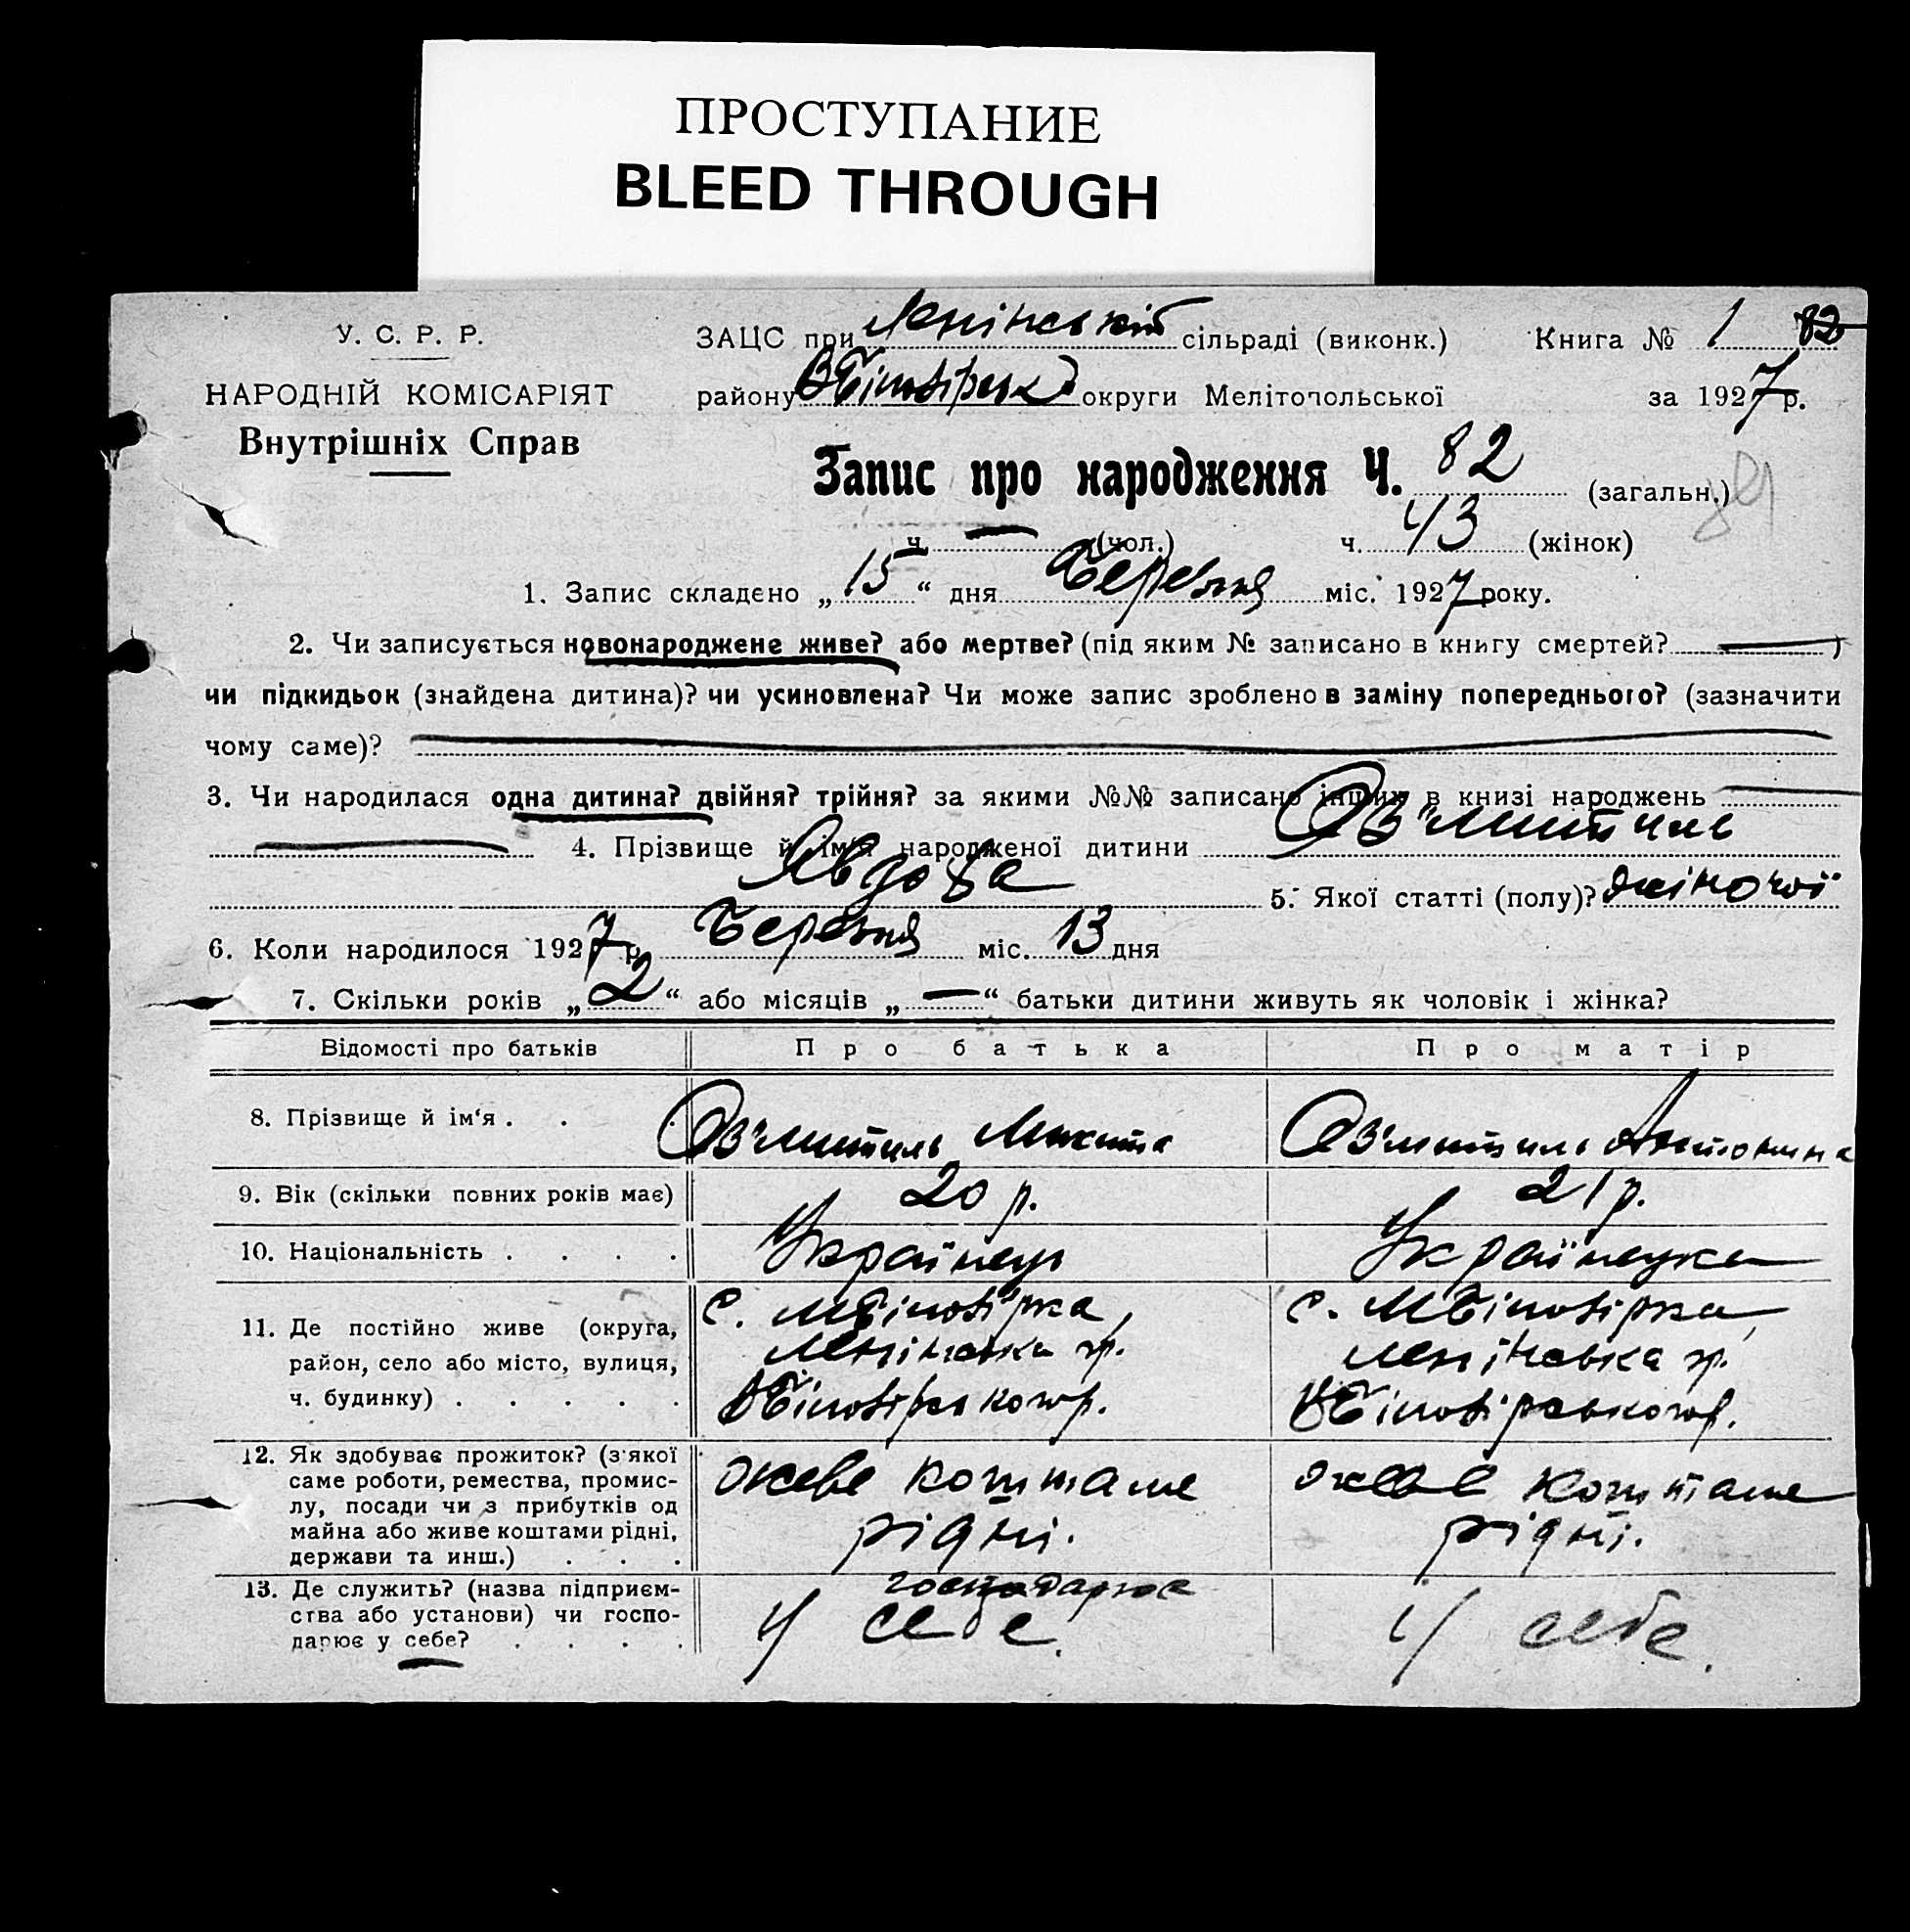 ПРОСТУПАНИЕ
BLEED THROUGH
У. С. Р. Р.
НАРОДНІЙ КОМІСАРІЯТ
Внутрішніх Справ
ЗАЦС при Ленінській сільраді (виконк.) Книга № 1 82
району округи Мелітопольської за 1927 р.
Запис про народження Ч. 82 (загальн.)
ч. — (чол.) ч. 43 (жінок)
1. Запис складено „15“ дня Березня міс. 1927 року.
2. Чи записується новонароджене живе? або мертве? (під яким № записано в книгу смертей? — )
чи підкидьок (знайдена дитина)? чи усиновлена? Чи може запис зроблено в заміну попереднього? (зазначити
чому саме)?
3. Чи народилася одна дитина? двійня? трійня? за якими №№ записано інших в книзі народжень —
— 4. Прізвище й ім'я народженої дитини
5. Якої статті (полу)? жіночої
6. Коли народилося 1927 р. Березня міс. 13 дня
7. Скільки років „2“ або місяців „—“ батьки дитини живуть як чоловік і жінка?
Відомості про батьків Про батька Про матір
8. Прізвище й ім‘я . . . Микита Антонина
9. Вік (скільки повних років має) 20 р. 21 р.
10. Національність . . . . Українець Українка
11. Де постійно живе (округа, район, село або місто, вулиця, ч. будинку) . . . . .
с. МБілозірка, Ленінська
с. МБілозірка, Ленінська
12. Як здобуває прожиток? (з'якої саме роботи, ремества, промислу, посади чи з прибутків од майна або живе коштами рідні, держави та инш.) . . .
живе коштами рідні.
живе коштами рідні.
13. Де служить? (назва підприємства або установи) чи господарює у себе? . . . .
господарює у себе.
у себе.